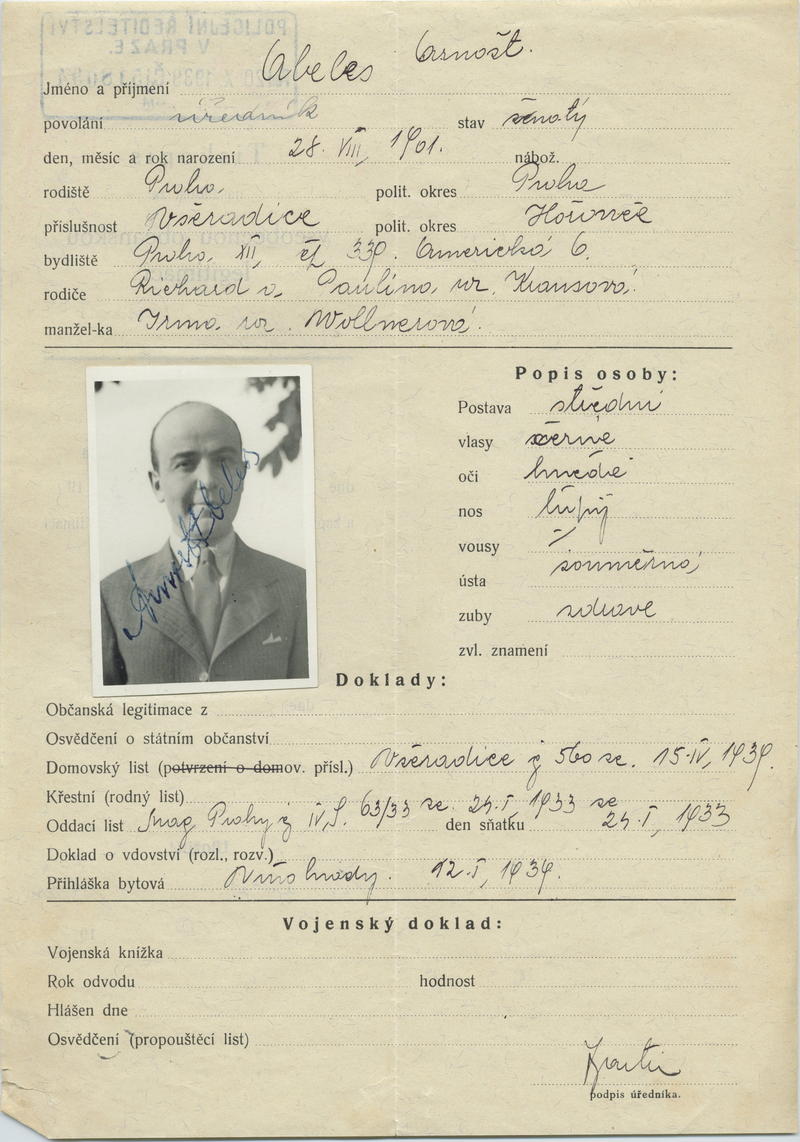 POLICEJNÍ ŘEDITELSTVÍ
V PRAZE.
Jméno a příjmení Abeles Arnošt.
povolání úředník stav ženatý
den, měsíc a rok narození 28. VIII, 1901. nábož.
rodiště Praha, polit. okres Praha
příslušnost Všeradice polit. okres Hořovice
bydliště Praha XII, čp 339. Americká 6.
rodiče Richard a Paulina roz. Krausová.
manžel-ka Irma roz. Wollnerová.
Popis osoby:
Postava střední
vlasy černé
oči hnědé
nos tupý
vousy
ústa souměrná
zuby zdravé
zvl. znamení
Arnošt Abeles
Doklady:
Občanská legitimace z
Osvědčení o státním občanství
Domovský list (potvrzení o domov. přísl.) Všeradice č 560 ze. 15.IV, 1939.
Křestní (rodný list)
Oddací list Mag Prahy č IV, S. 63/33 ze. 24.I, 1933 den sňatku 24.I, 1933
Doklad o vdovství (rozl., rozv.)
Přihláška bytová Vinohrady. 12.I, 1939.
Vojenský doklad:
Vojenská knížka
Rok odvodu hodnost
Hlášen dne
Osvědčení (propouštěcí list)
podpis úředníka.